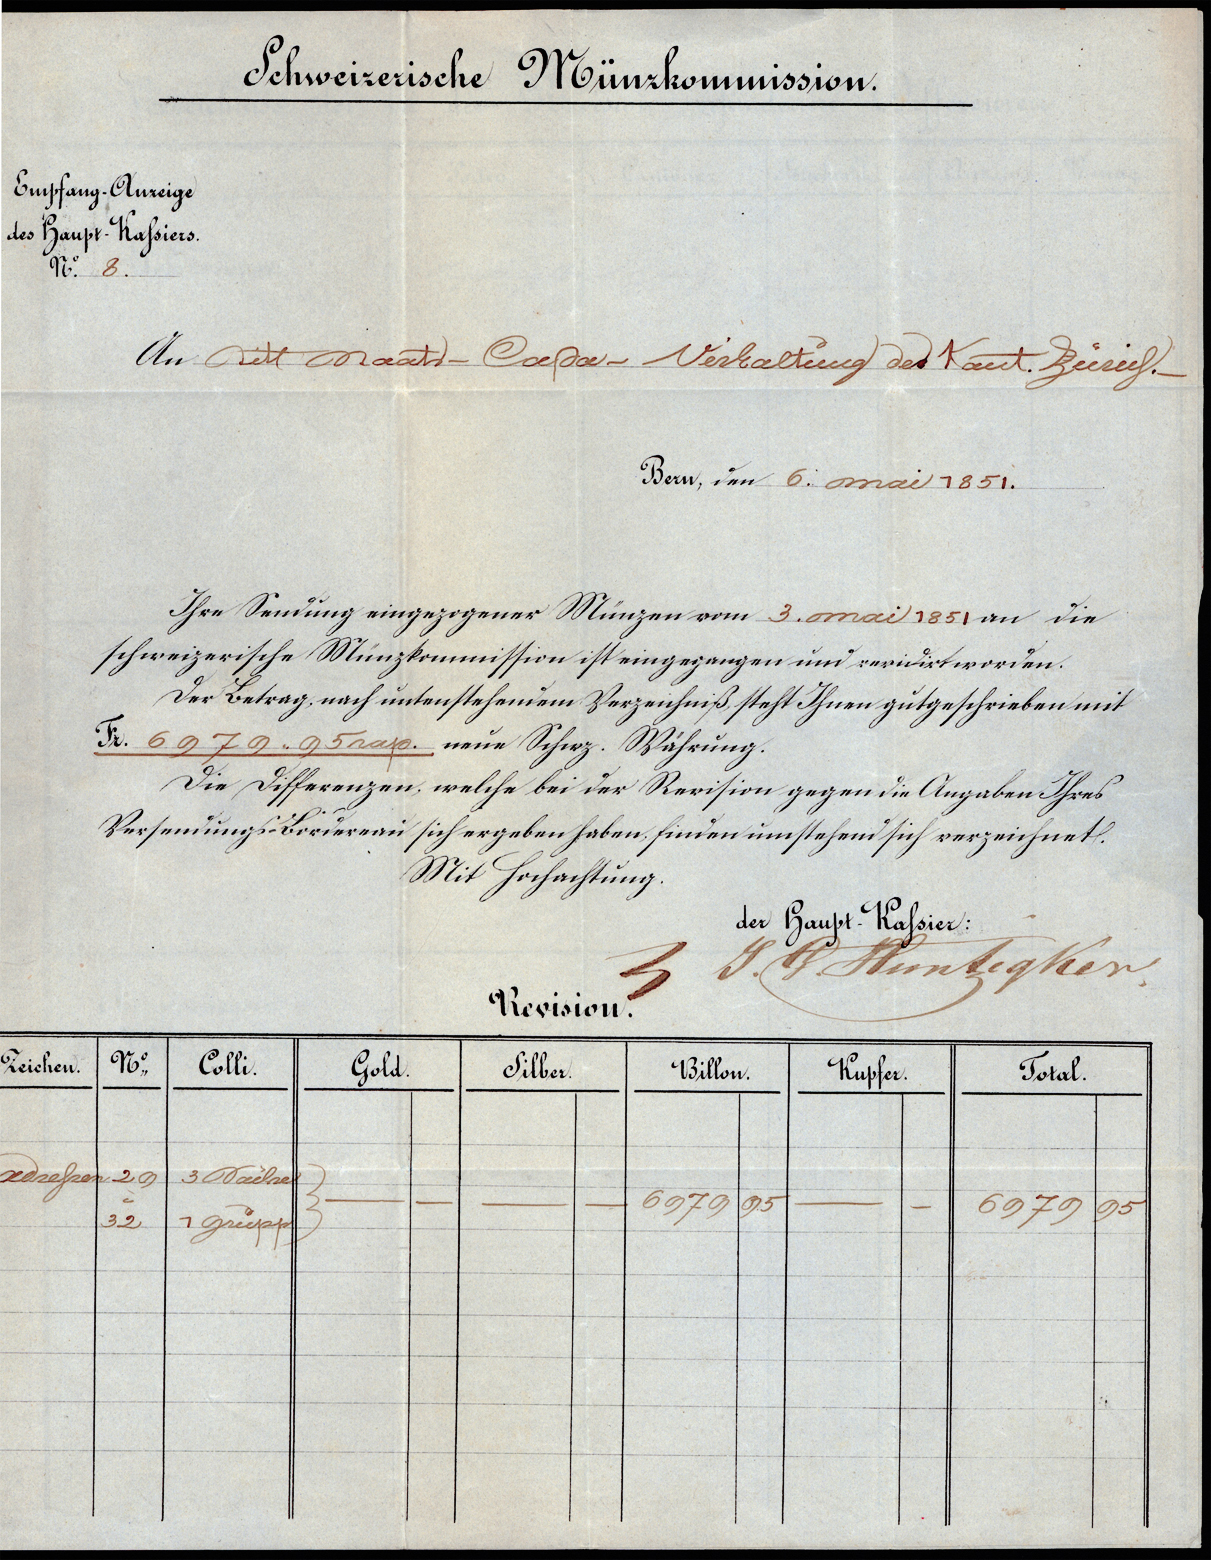 Schweizerische Münzkommission.
Empfang-Anzeige
des Haupt-Kaßiers.
N.º 8.
An Staats-Cassa-Verwaltung des Kant. Zürich.
Bern, den 6. Mai 1851.
Ihre Sendung eingezogener Münzen vom 3. Mai 1851 an die
schweizerische Münzkommission ist eingegangen und revidirt worden.
Der Betrag, nach untenstehendem Verzeichniß, steht Ihnen gutgeschrieben mit
Fr. 6979. 95 rap. neue Schwz. Währung.
Die Differenzen, welche bei der Revision gegen die Angaben Ihres
Versendungs-Bordereau sich ergeben haben, finden umstehend sich verzeichnet.
Mit Hochachtung.
der Haupt-Kaßier:
Revision.
Zeichen. N.º Colli. Gold. Silber. Billon. Kupfer. Total.
Adreßen 29 3
6979 95 6979 95
32 1 Grupp